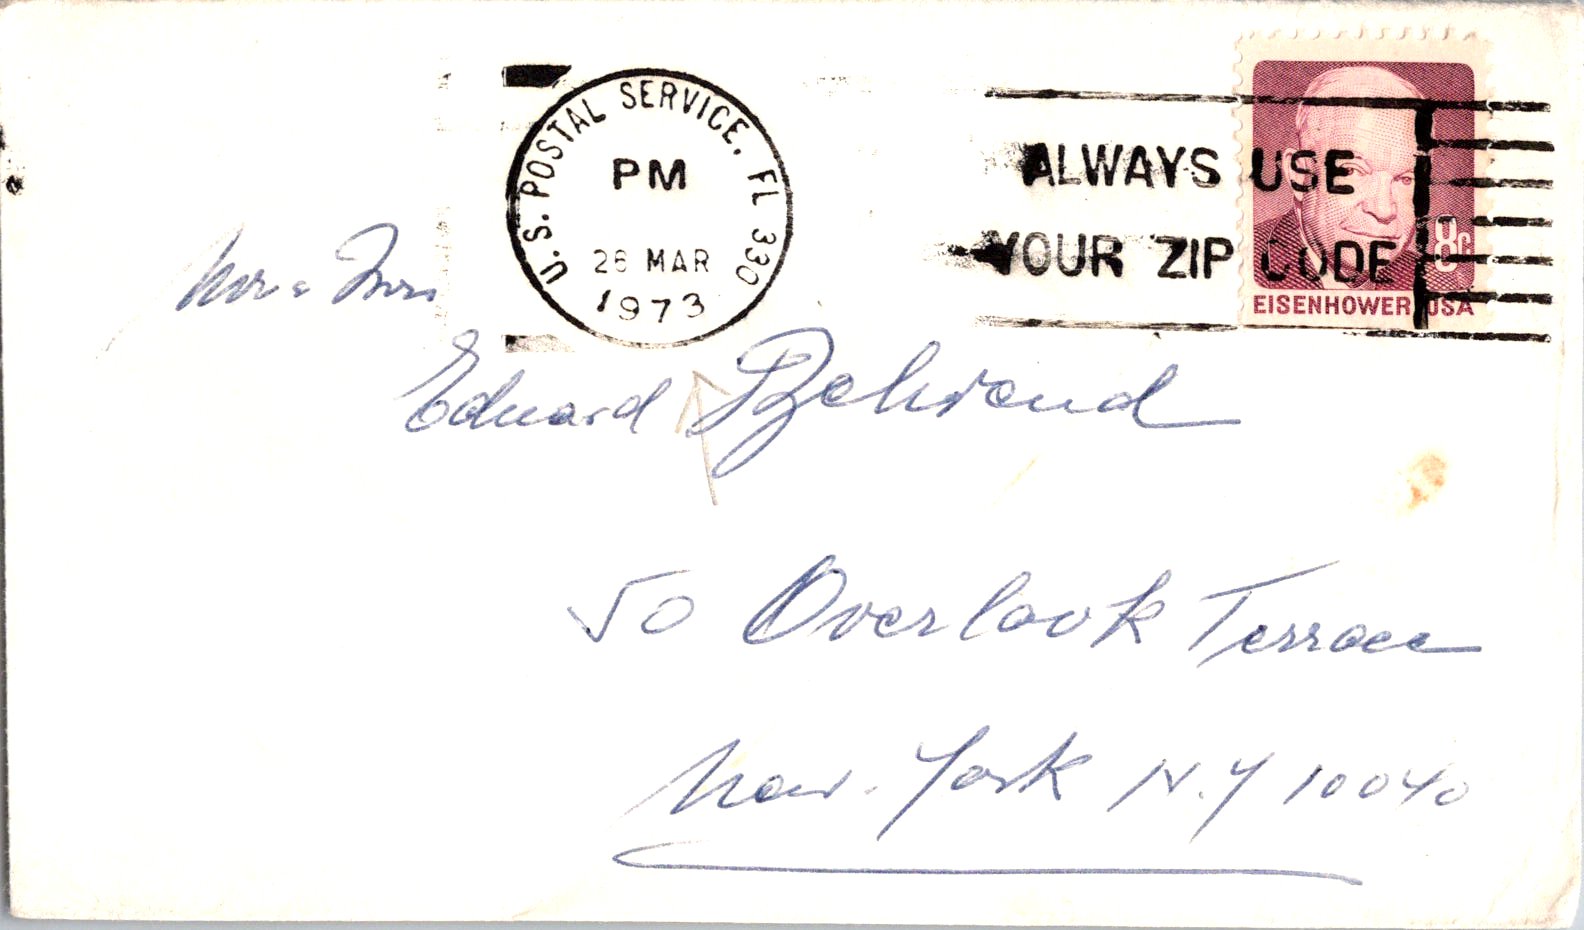 U.S. POSTAL SERVICE, FL 330
PM
26 MAR
1973
ALWAYS USE
YOUR ZIP CODE
8c
EISENHOWER USA
Mr & Mrs
Eduard Behrend
50 Overlook Terrace
New-York N.Y 10040